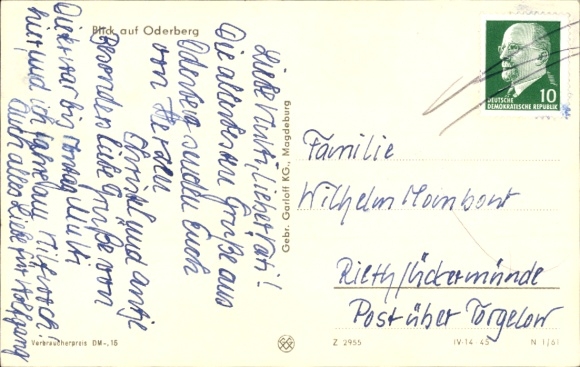 Blick auf Oderberg
Liebe Mutti, lieber Vati!
Die allerbesten Grüße aus
Oderberg senden Euch
von Herzen
Christel und Antje
Besonders liebe Grüße von
Dieter war bis Montag Mutti
hier, und ich fahre am Mittwoch!
Auch alles Liebe für Wolfgang
Verbraucherpreis DM -,15
Gebr. Garloff KG., Magdeburg
10
DEUTSCHE
DEMOKRATISCHE REPUBLIK
Familie
Wilhelm
Rieth/Ückermünde
Post über Torgelow
Z 2955
IV-14-45
N 1/61